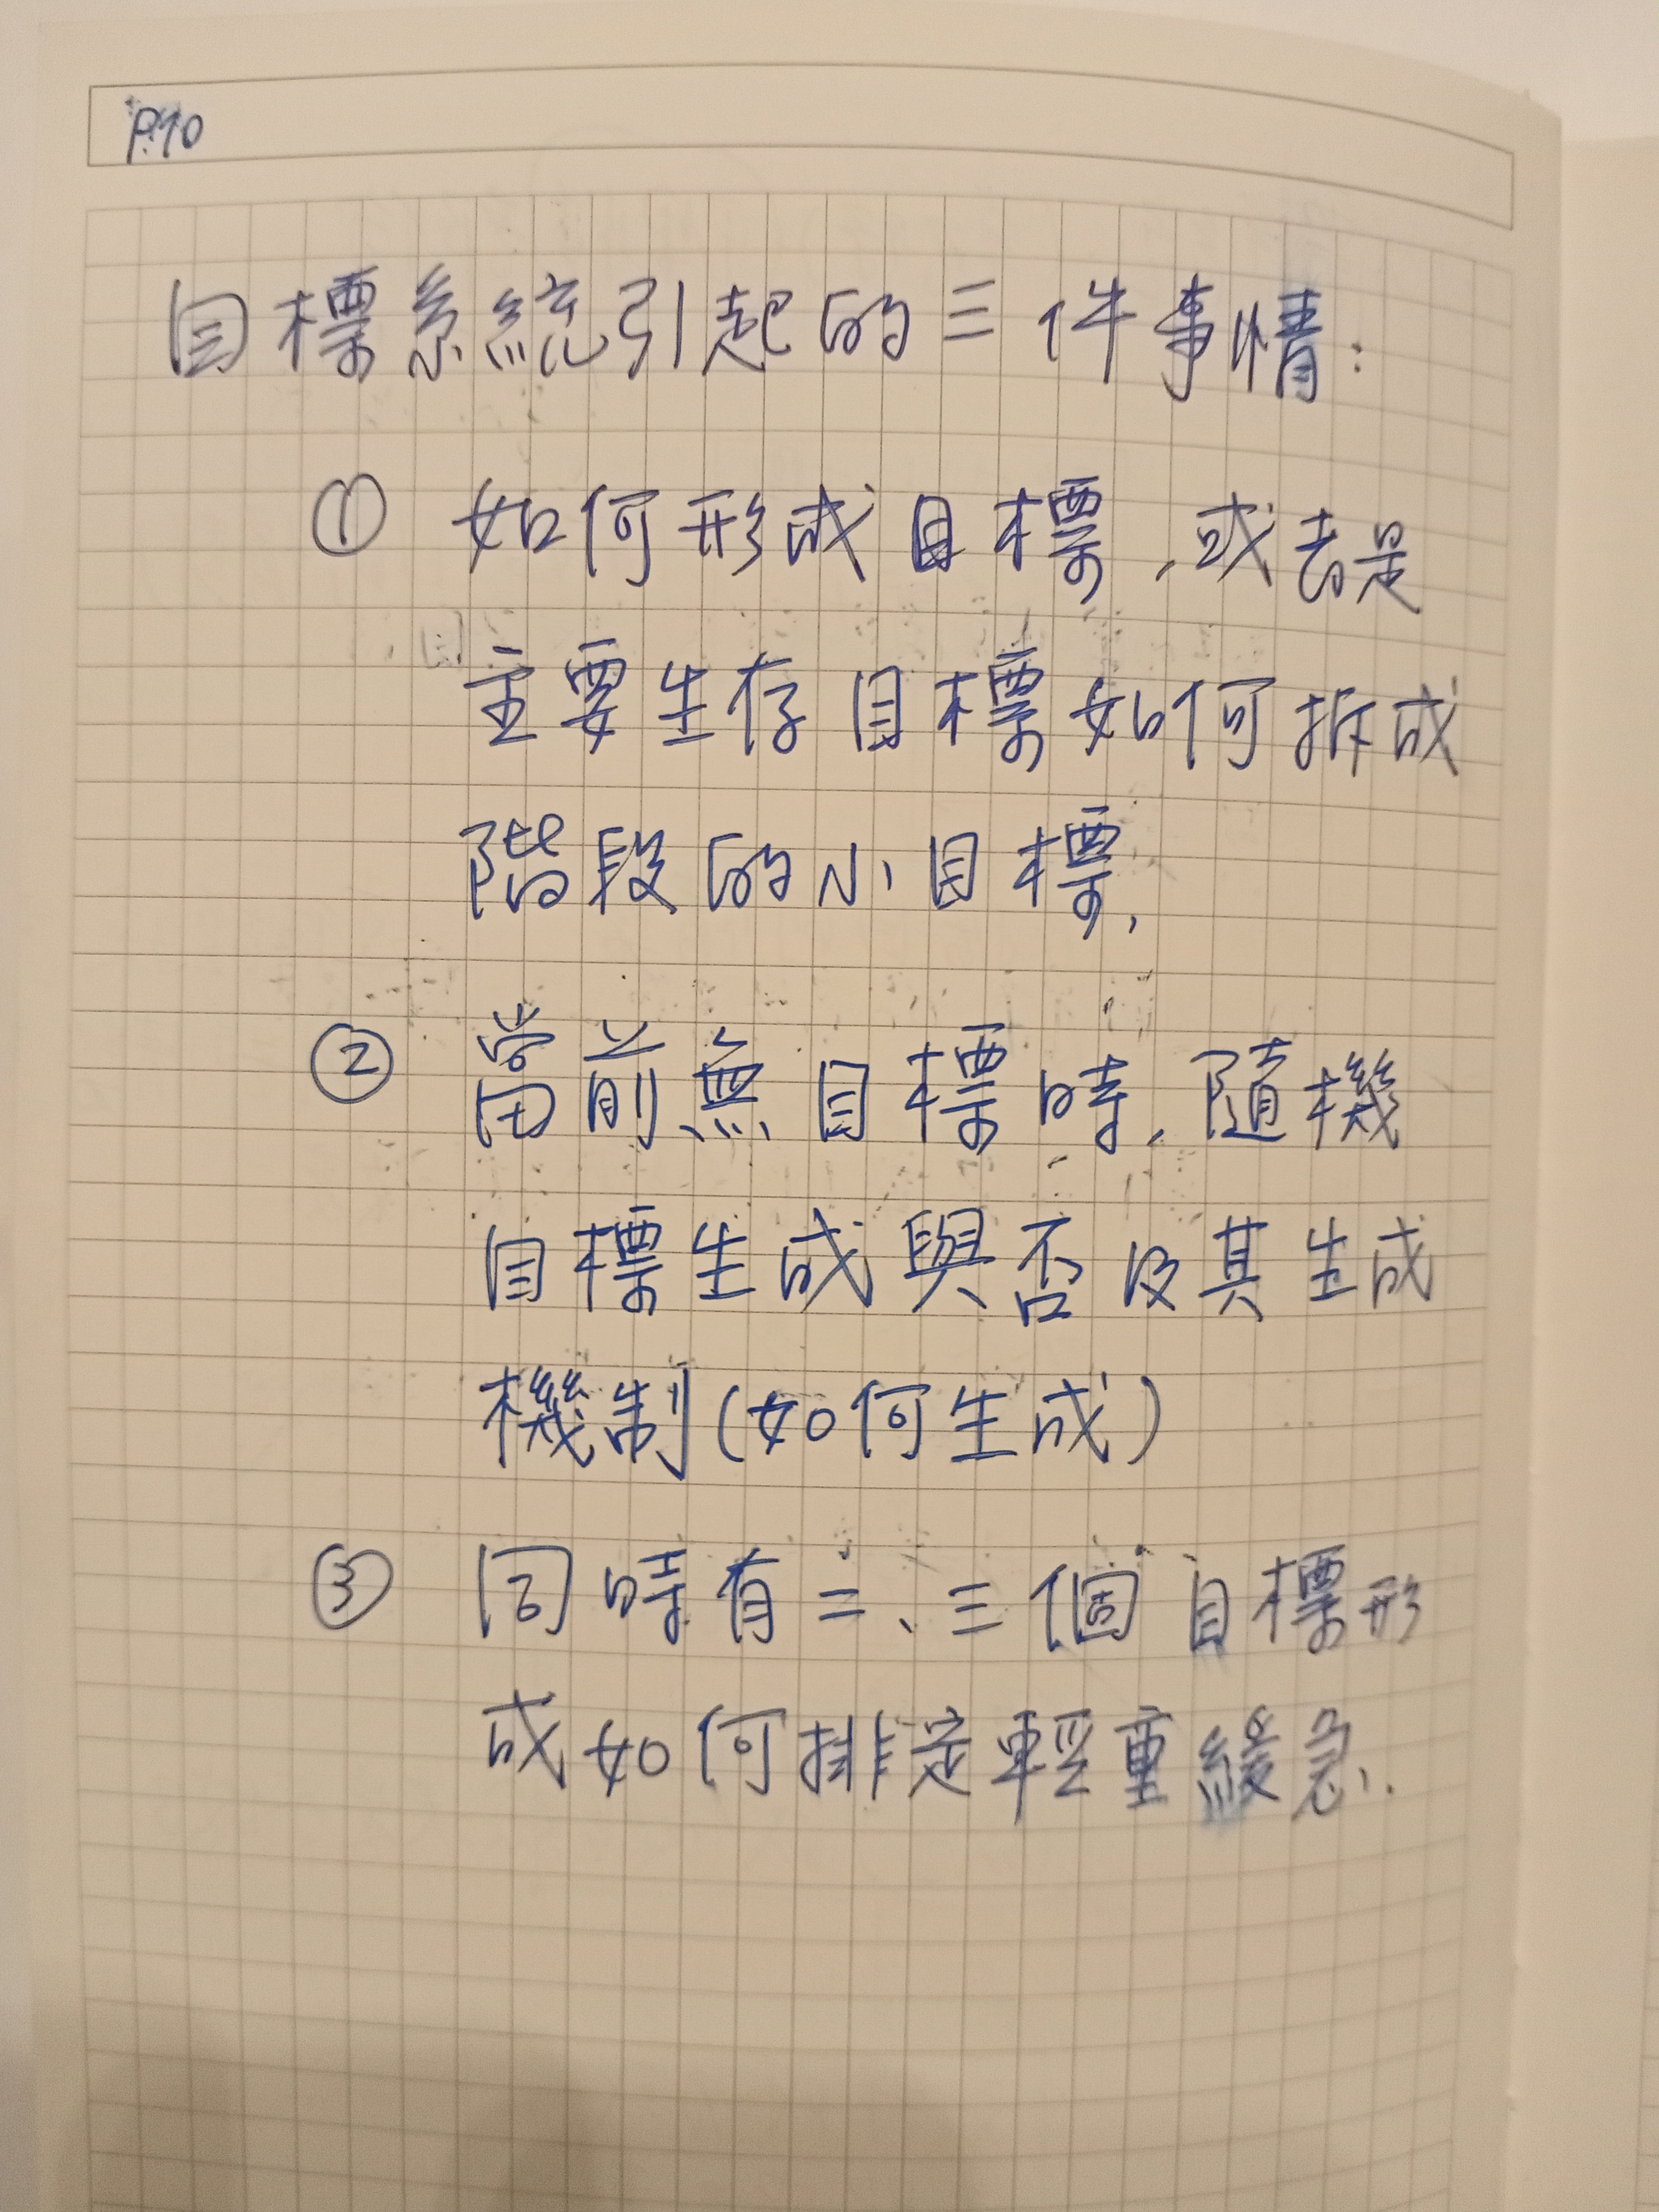 P.10
目標系統引起的三件事情:
① 如何形成目標,或者是
主要生存目標如何拆成
階段的小目標,
② 當前無目標時,隨機
目標生成與否及其生成
機制(如何生成)
③ 同時有二、三個目標形
成如何排定輕重緩急.